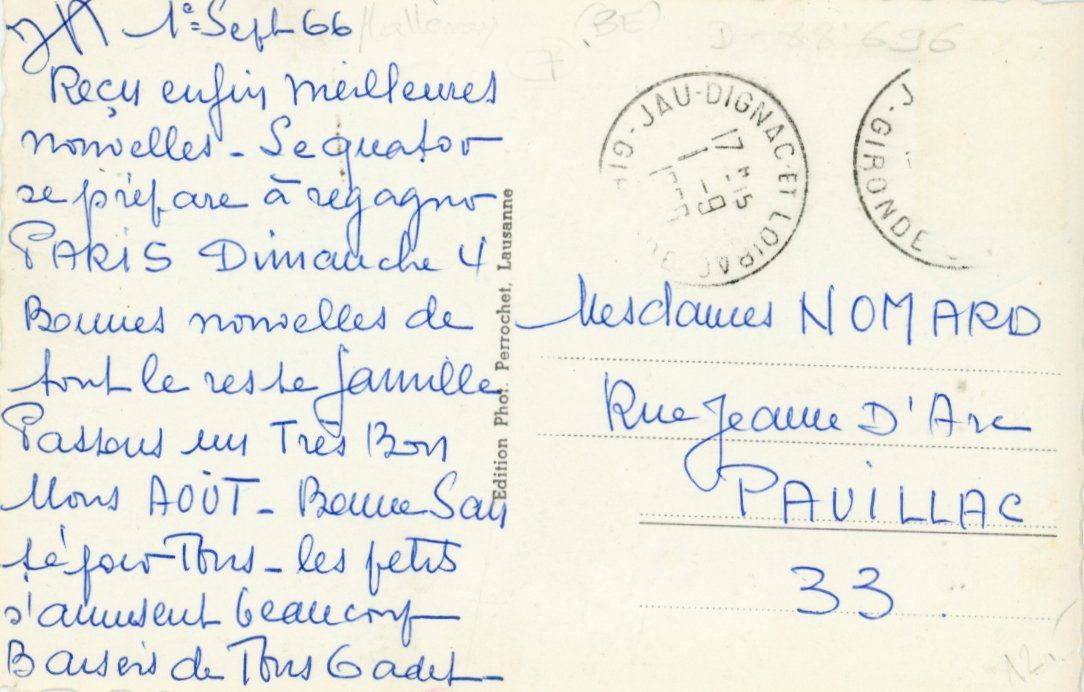 1e Sept 66
Reçu enfin meilleures
nouvelles - Sequator
se prépare à regagner
PARIS Dimanche 4
Bonnes nouvelles de
tout le reste famille
Passons un Très Bon
Mous AOÛT - Bonne San
té pour Tous - les petits
s'amusent beaucoup
Baisers de Tous Gadet -
Edition Phot. Perrochet, Lausanne
Malleray
(BE)
7
D-88 696
JAU-DIGNAC-ET LOIRAC
17-15
1-9
GIRONDE
Mesdames NOMARD
Rue Jeanne D'Arc
PAUILLAC
33